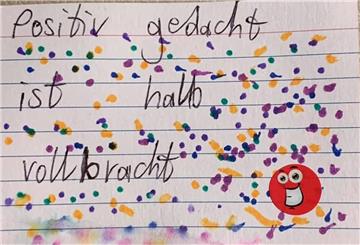 Positiv gedacht
ist halb
vollbracht